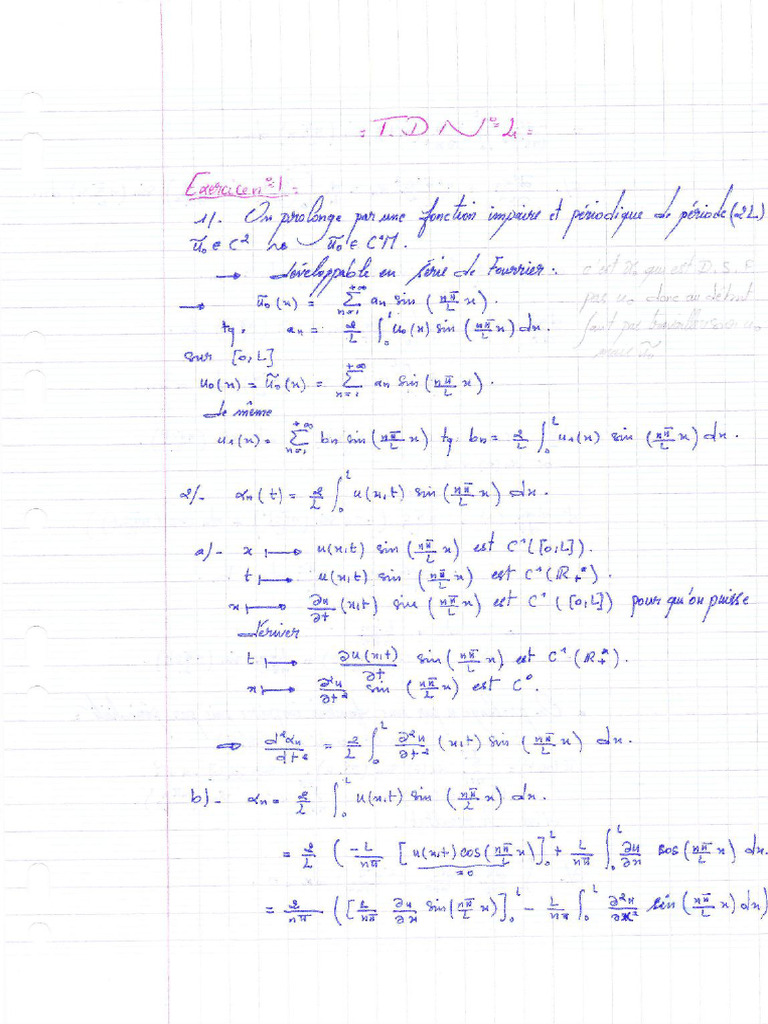 = T.D N°2 =
Exercice n°1 =
1/. On prolonge par une fonction impaire et périodique de période (2L)
ũ₀ ∈ C² ↝ ũ₀ ∈ C¹M.
→ développable en série de Fourrier.
c'est ũ₀ qui est D.S.F
→ ũ₀(x) = ∑_{n=1}^{+∞} aₙ sin (nπ/L x).
pas u₀ donc au début
tq. aₙ = 2/L ∫₀ᴸ u₀(x) sin (nπ/L x) dx.
faut pas travailler sur u₀
mais ũ₀
sur [0,L]
u₀(x) = ũ₀(x) = ∑_{n=1}^{+∞} aₙ sin(nπ/L x).
de même
u₁(x) = ∑_{n=1}^{+∞} bₙ sin(nπ/L x) tq bₙ = 2/L ∫₀ᴸ u₁(x) sin (nπ/L x) dx.
2/- αₙ(t) = 2/L ∫₀ᴸ u(x,t) sin(nπ/L x) dx.
a)- x ⟼ u(x,t) sin(nπ/L x) est C¹([0,L]).
t ⟼ u(x,t) sin (nπ/L x) est C¹(ℝ₊*).
x ⟼ ∂u/∂t (x,t) sin (nπ/L x) est C¹([0,L]) pour qu'on puisse
dériver
t ⟼ ∂u(x,t)/∂t sin(nπ/L x) est C¹(ℝ₊*).
x ⟼ ∂²u/∂t² sin (nπ/L x) est C⁰.
⇒ d²αₙ/dt² = 2/L ∫₀ᴸ ∂²u/∂t² (x,t) sin(nπ/L x) dx.
b)- αₙ = 2/L ∫₀ᴸ u(x,t) sin (nπ/L x) dx.
= 2/L (-L/nπ [u(x,t) cos(nπ/L x)]₀ᴸ + L/nπ ∫₀ᴸ ∂u/∂x cos(nπ/L x) dx.
=0
= 2/nπ ([L/nπ ∂u/∂x sin(nπ/L x)]₀ᴸ - L/nπ ∫₀ᴸ ∂²u/∂x² sin(nπ/L x) dx)